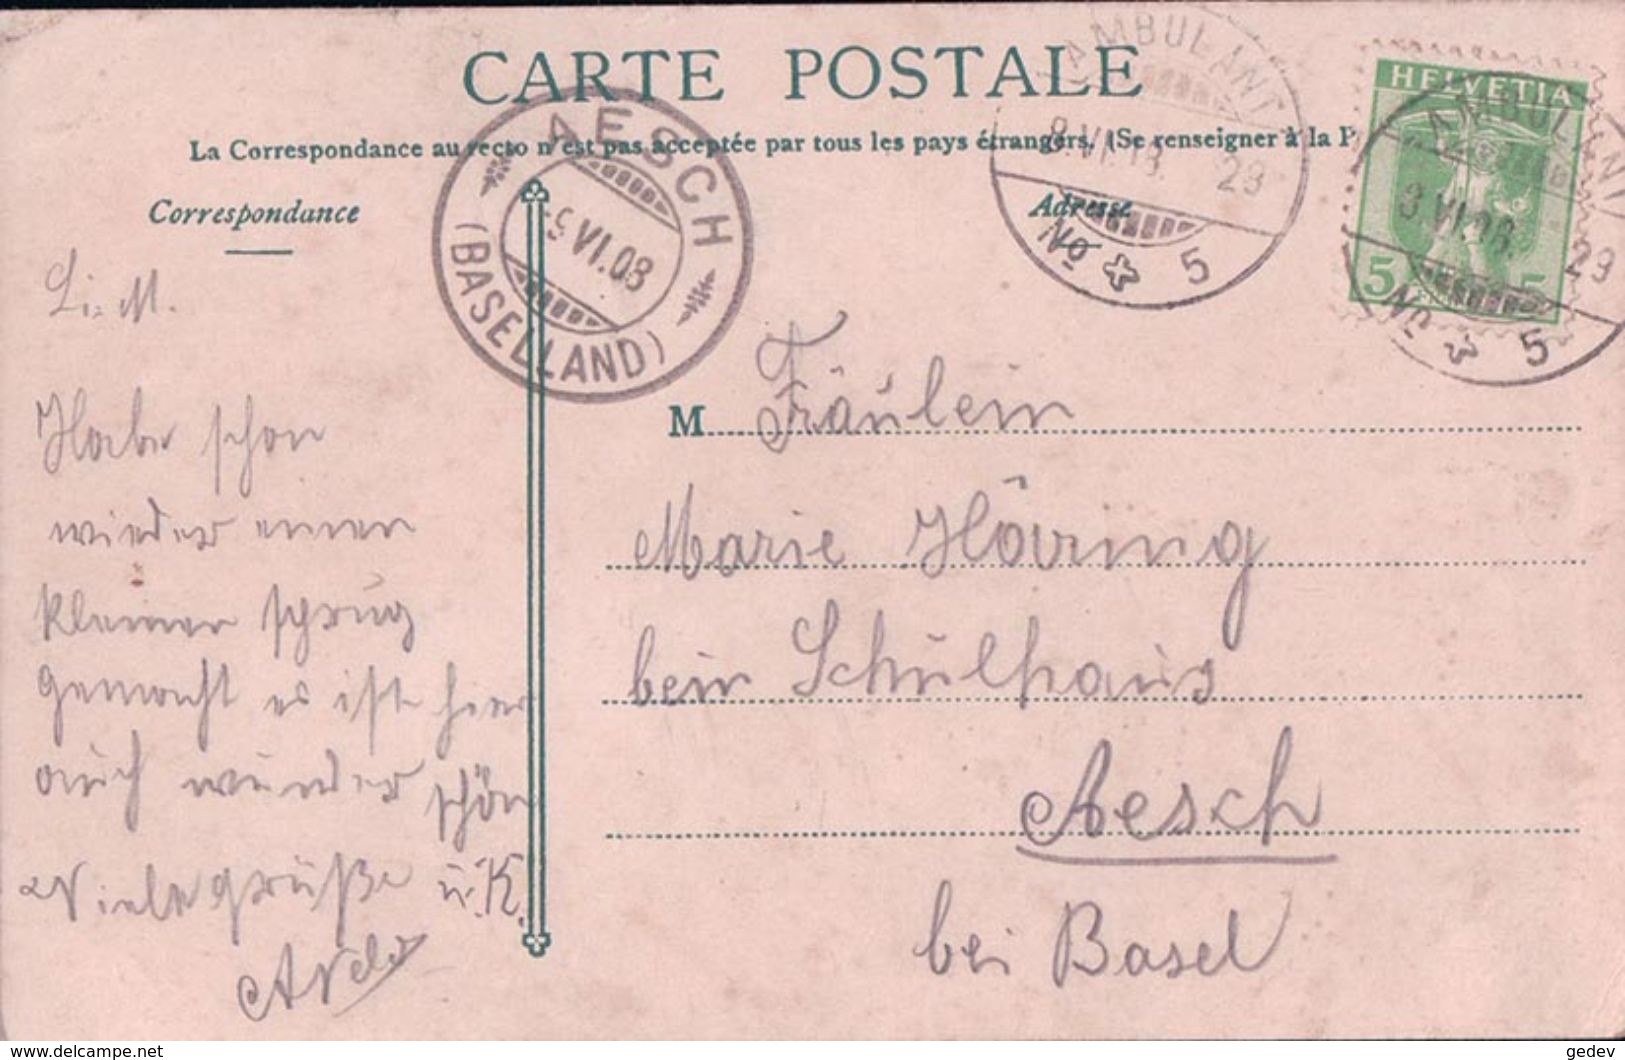 CARTE POSTALE
La Correspondance au recto n'est pas acceptée par tous les pays étrangers. (Se renseigner à la P
Correspondance
Adresse
AESCH
9 VI.08
(BASELLAND)
AMBULANT
8.VI.08. 29
No 5
HELVETIA
5 5
AMBULANT
8 VI.08. 29
No 5
L. M.
Habe schon
wieder einen
kleinen sprug
gemacht es ist hier
auch wunder schön
Viele grüße u. K.
M Fräulein
Marie Häring
bein Schulhaus
Aesch
bei Basel
https://www.delcampe.net
gedev